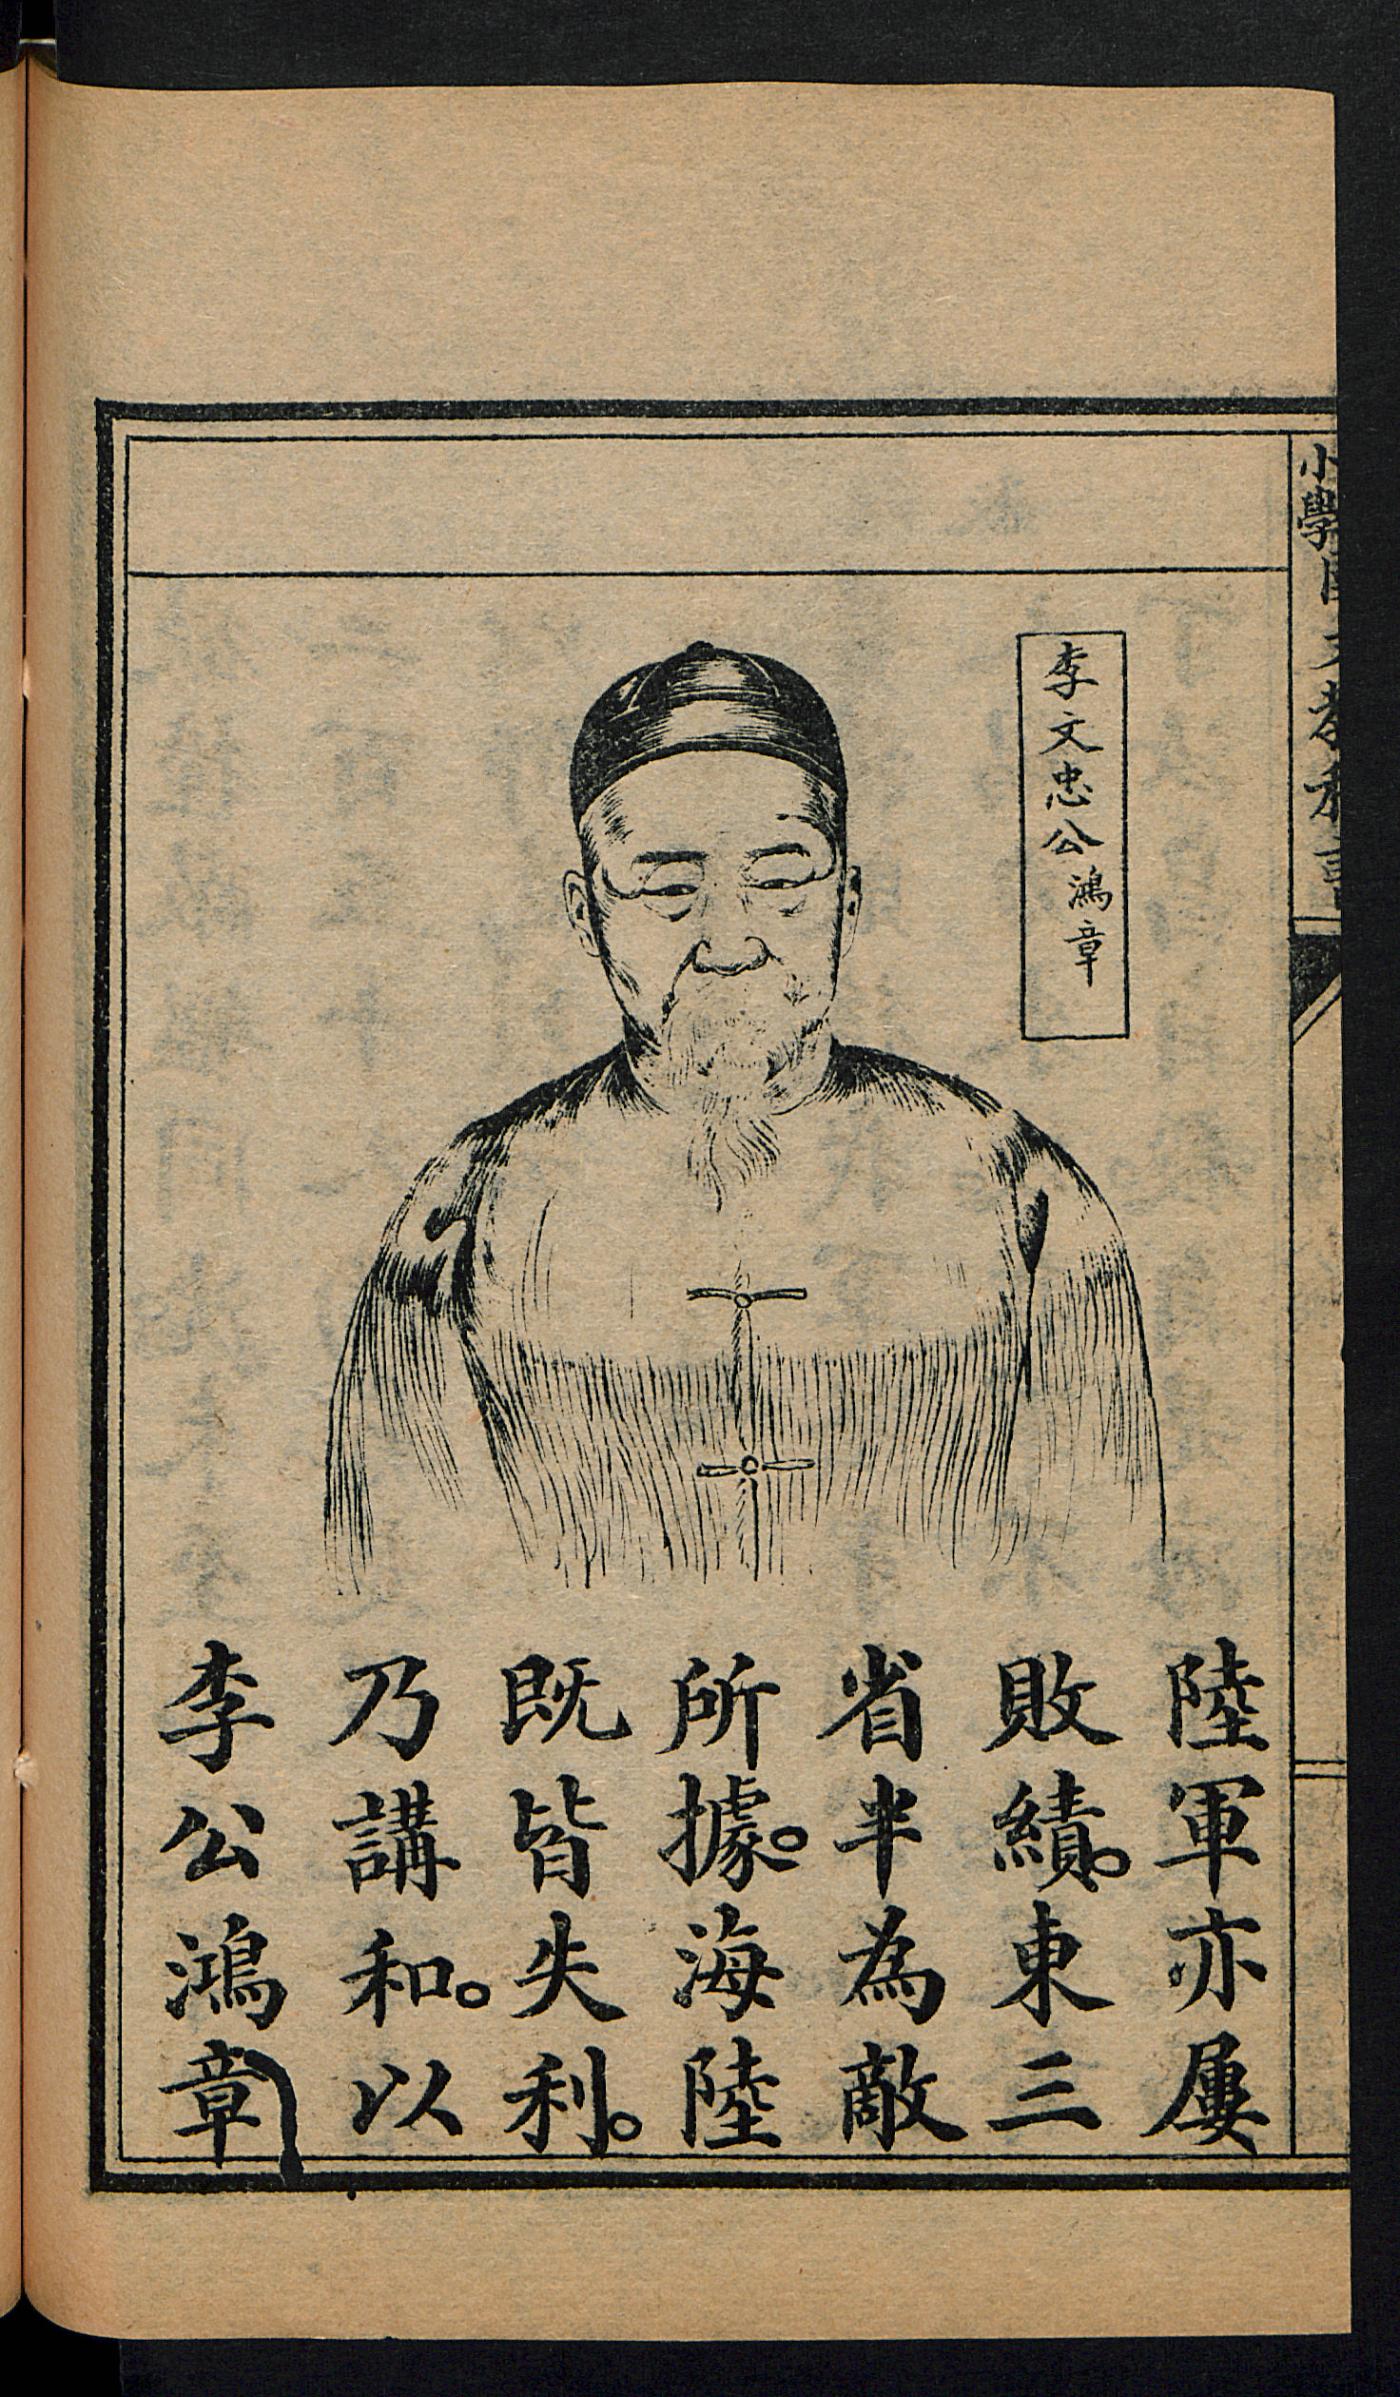 小學
李文忠公鴻章
陸軍亦屢
敗績。東三
省半為敵
所據。海陸
既皆失利。
乃講和。以
李公鴻章